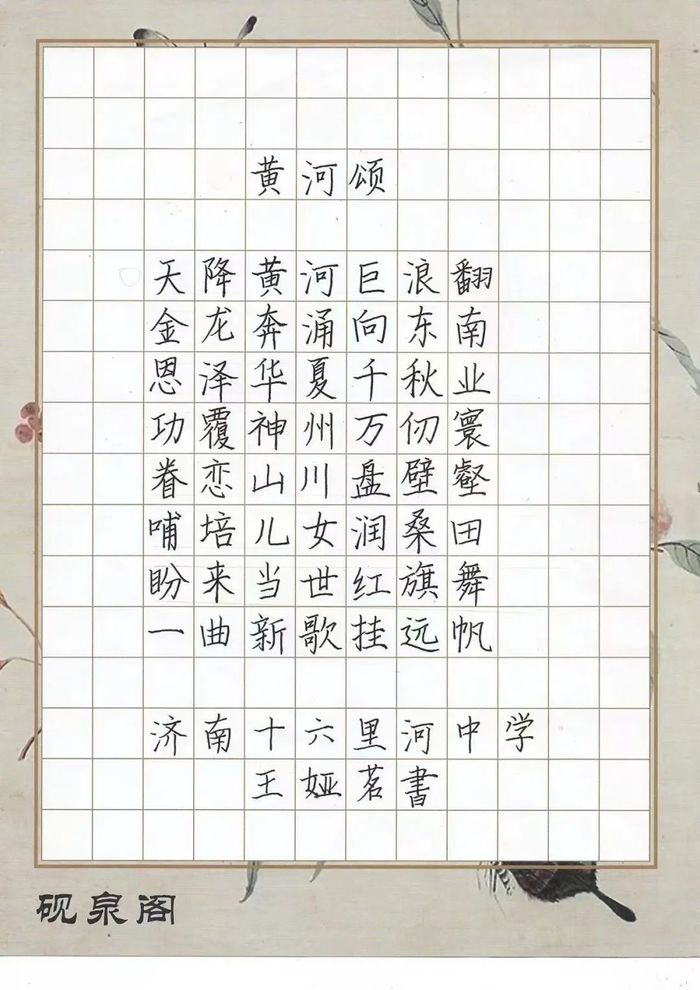 黄河颂
天降黄河巨浪翻
金龙奔涌向东南
恩泽华夏千秋业
功覆神州万仞寰
眷恋山川盘壁壑
哺培儿女润桑田
盼来当世红旗舞
一曲新歌挂远帆
济南十六里河中学
王娅茗書
砚泉阁